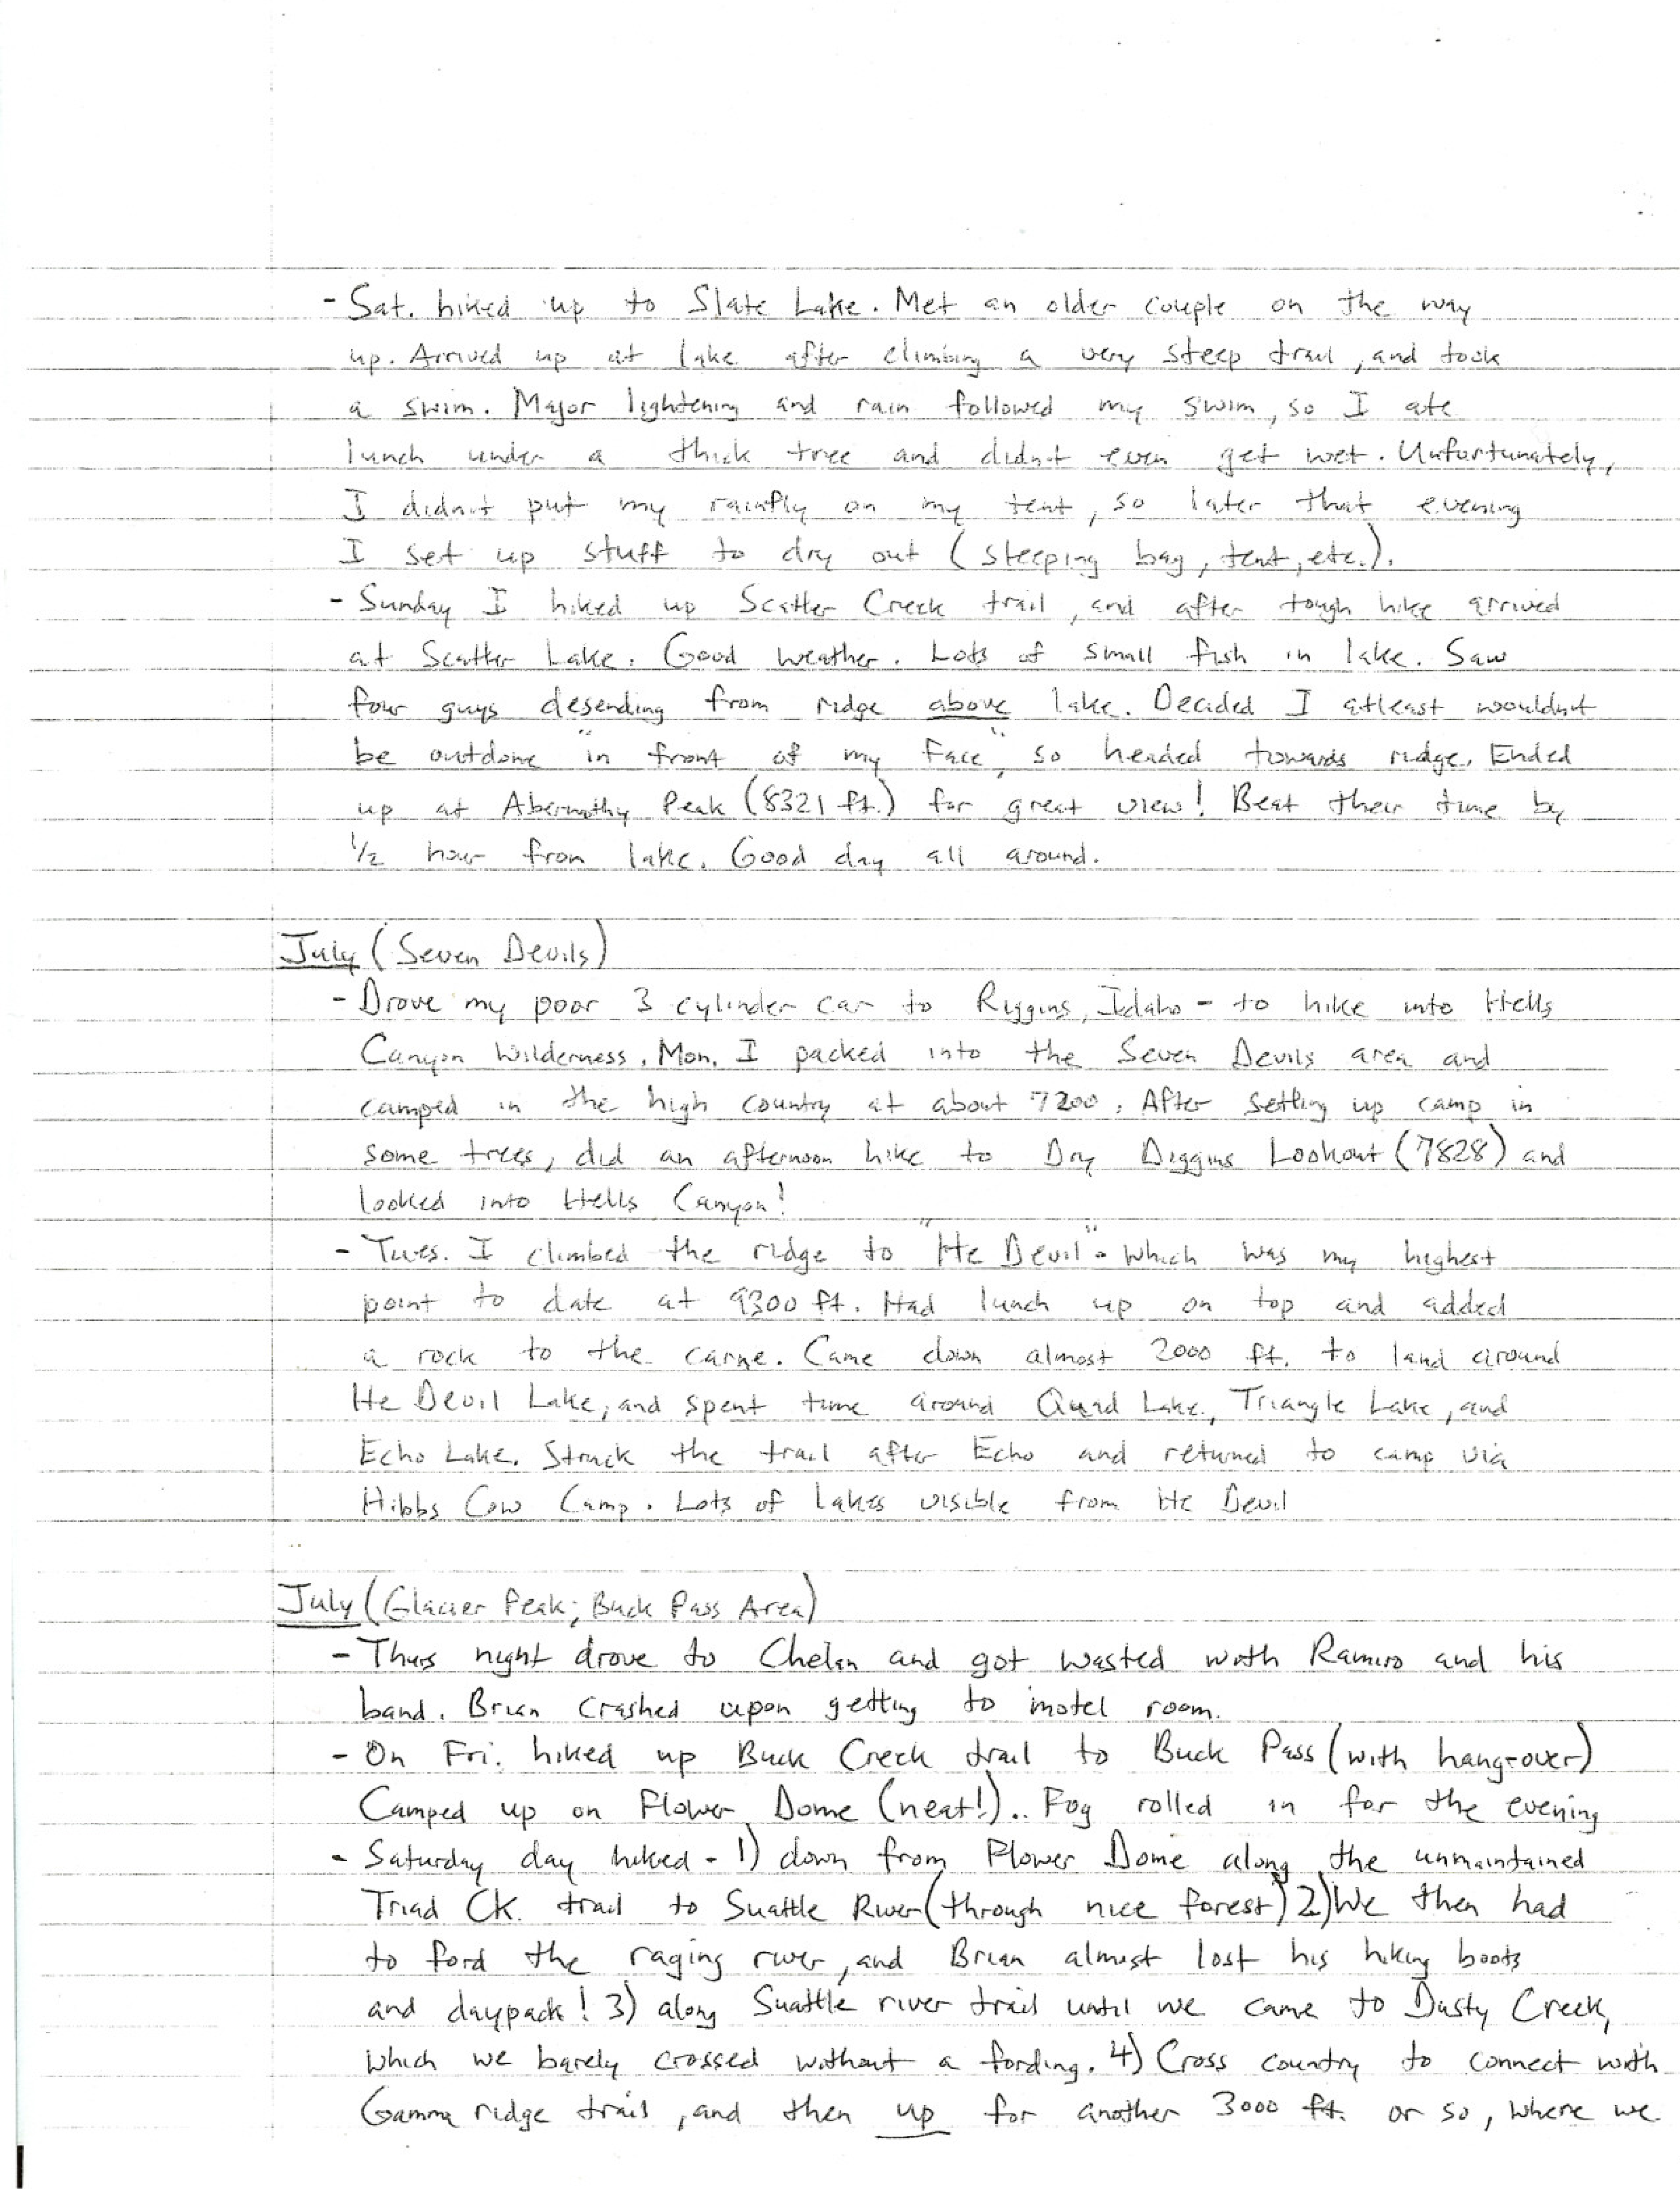 - Sat. hiked up to Slate Lake. Met an older couple on the way
up. Arrived up at lake after climbing a very steep trail, and took
a swim. Major lightening and rain followed my swim, so I ate
lunch under a thick tree and didn't even get wet. Unfortunately,
I didn't put my rainfly on my tent, so later that evening
I set up stuff to dry out (sleeping bag, tent, etc.).
- Sunday I hiked up Scatter Creek trail, and after tough hike arrived
at Scatter Lake. Good weather. Lots of small fish in lake. Saw
four guys desending from ridge above lake. Decided I atleast wouldn't
be outdone "in front of my face" so headed towards ridge. Ended
up at Abernathy Peak (8321 ft.) for great view! Beat their time by
1/2 hour from lake. Good day all around.
July (Seven Devils)
- Drove my poor 3 cylinder car to Riggins, Idaho - to hike into Hells
Canyon Wilderness. Mon. I packed into the Seven Devils area and
camped in the high country at about 7200. After setting up camp in
some trees, did an afternoon hike to Dry Diggins Lookout (7828) and
looked into Hells Canyon!
- Tues. I climbed the ridge to "He Devil" - which was my highest
point to date at 9300 ft. Had lunch up on top and added
a rock to the carne. Came down almost 2000 ft. to land around
He Devil Lake, and spent time around Quad Lake, Triangle Lake, and
Echo Lake. Struck the trail after Echo and returned to camp via
Hibbs Cow Camp. Lots of lakes visible from He Devil
July (Glacier Peak; Buck Pass Area)
- Thurs night drove to Chelan and got wasted with Ramiro and his
band. Brian crashed upon getting to motel room.
- On Fri. hiked up Buck Creek trail to Buck Pass (with hang-over)
Camped up on Flower Dome (neat!).. Fog rolled in for the evening
- Saturday day hiked - 1) down from Flower Dome along the unmaintained
Triad Ck. trail to Suattle River (through nice forest) 2) We then had
to ford the raging river, and Brian almost lost his hiking boots
and daypack! 3) along Suattle river trail until we came to Dusty Creek,
which we barely crossed without a fording. 4) Cross country to connect with
Gamma ridge trail, and then up for another 3000 ft. or so, where we